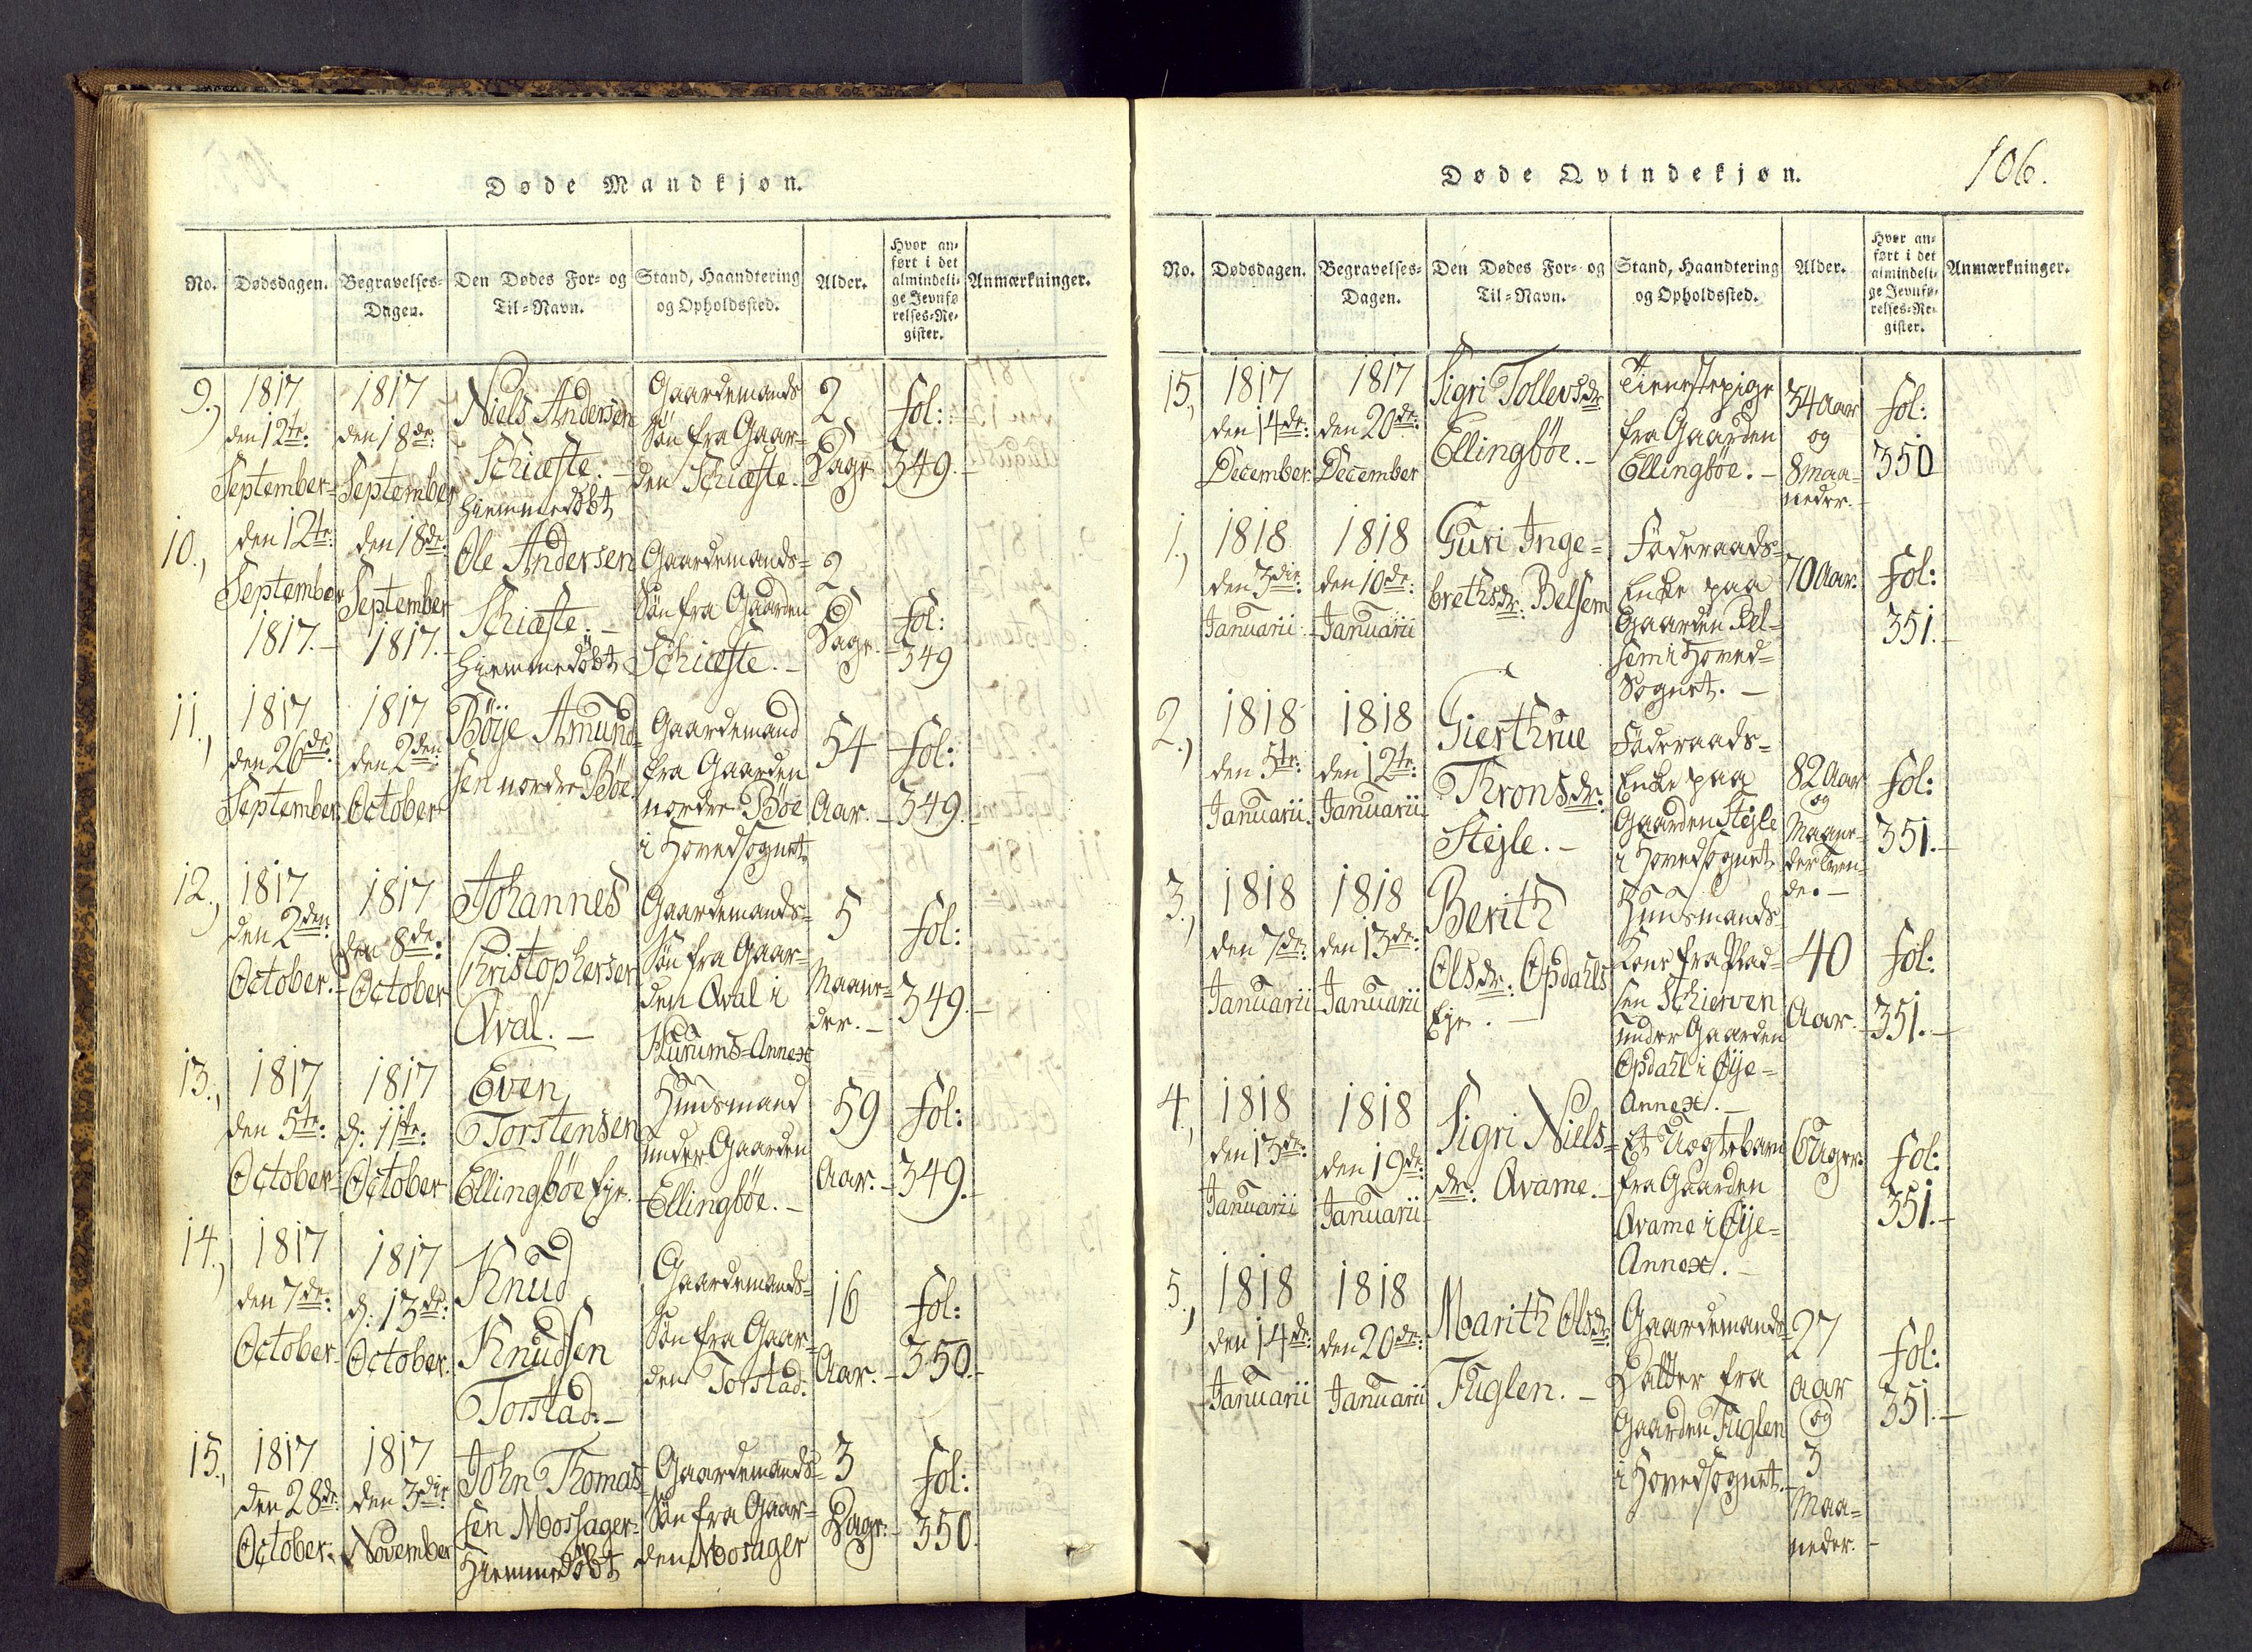 Døde Mandkjøn.
No.
Dødsdagen.
Begravelses-
Dagen.
Den Dødes For- og
Til-Navn.
Stand, Haandtering
og Opholdssted.
Alder.
Hvor an-
ført i det
almindeli-
ge Jevnfø-
relses-Re-
gister.
Anmærkninger.
9.,
1817
den 12te:
September-
1817
den 18de:
September
Niels Andersen
Schiæfte.-
Hiemmedöbt
Gaardemands
Sön fra Gaar-
den Schiæfte.-
2
Dage
fol:
349.-
10.,
den 12te:
September
1817.-
den 18de:
September
1817.-
Ole Andersen
Schiæfte.-
Hiemmedöbt
Gaardemands-
Sön fra Gaarden
Schiæfte.-
2
Dage.-
fol:
349
11.,
1817
den 26de:
September
1817
den 2den:
October
Böye Amund-
sen nordre Böe.
Gaardemand
fra Gaarden
nordre Böe
i Hovedsognet.
54
Aar.-
fol:
349.-
12.,
1817
den 2den:
October.-
1817
den 8de:
October
Johannes
Christophersen
Qval.-
Gaardemands-
Sön fra Gaar-
den Qval i
Hurums-Annex
5
Maane-
der.-
fol:
349.-
13.,
1817
den 5te:
October-
1817
d: 11te:
October
Even
Torstensen
Ellingböe Eje.-
Huusmand
under Gaarden
Ellingböe.-
59
Aar.-
fol:
349.-
14.,
1817
den 7de:
October-
1817
d: 13de:
October.
Knud
Knudsen
Torstad.-
Gaardemands-
Sön fra Gaar-
den Torstad.
16
Aar.-
fol:
350.-
15.,
1817
den 28de:
October.
1817
den 3die
November
John Thomas-
sen Mossager-
Hiemmedöbt
Gaardemands-
Sön fra Gaar-
den Mosager
3
Dage.-
fol:
350.
Døde Qvindekjøn.
106.
No.
Dødsdagen.
Begravelses-
Dagen.
Den Dødes For- og
Til-Navn.
Stand, Haandtering
og Opholdssted.
Alder.
Hvor an-
ført i det
almindeli-
ge Jevnfø-
relses-Re-
gister.
Anmærkninger.
15.,
1817
den 14de:
December.
1817
den 20de:
December
Sigri Tollevsdr:
Ellingböe.-
Tienestepige
fra Gaarden
Ellingböe.-
34 Aar
og
8 Maa-
neder.-
fol:
350
1.,
1818
den 3die:
Januarii.
1818
den 10de:
Januarii
Guri Inge-
brethsdr: Belsem
Föderaads-
Enke paa
Gaarden Bel-
sem i Hoved-
Sognet.-
70 Aar.
fol:
351.-
2.,
1818
den 5te:
Januarii.
1818
den 12te:
Januarii.
Gierthrue
Thronsdr:
Stejle.-
Föderaads-
Enke paa
Gaarden Stejle
i Hovedsognet
82 Aar
og
Maane-
der Leven-
de.-
fol:
351.-
3.,
1818
den 7de:
Januarii
1818
den 13de:
Januarii
Berith
Olsdr: Opdahls
Eje.-
Huusmands
Kone fra Plad-
sen Schierven
under Gaarden
Opdahl i Öije-
Annex.-
40
Aar.-
fol:
351.-
4.,
1818
den 13de:
Januarii
1818
den 19de:
Januarii
Sigri Niels-
dr: Qvame.-
Et Uægtebarn
fra Gaarden
Qvame i Öije-
Annex.-
6 Uger.
fol:
351.-
5.,
1818
den 14de:
Januarii
1818
den 20de:
Januarii
Marith Olsdr:
Fuglen.-
Gaardemands
Datter fra
Gaarden Fuglen
i Hovedsognet.-
27
Aar
og
3
Maa-
neder.-
fol:
351.-